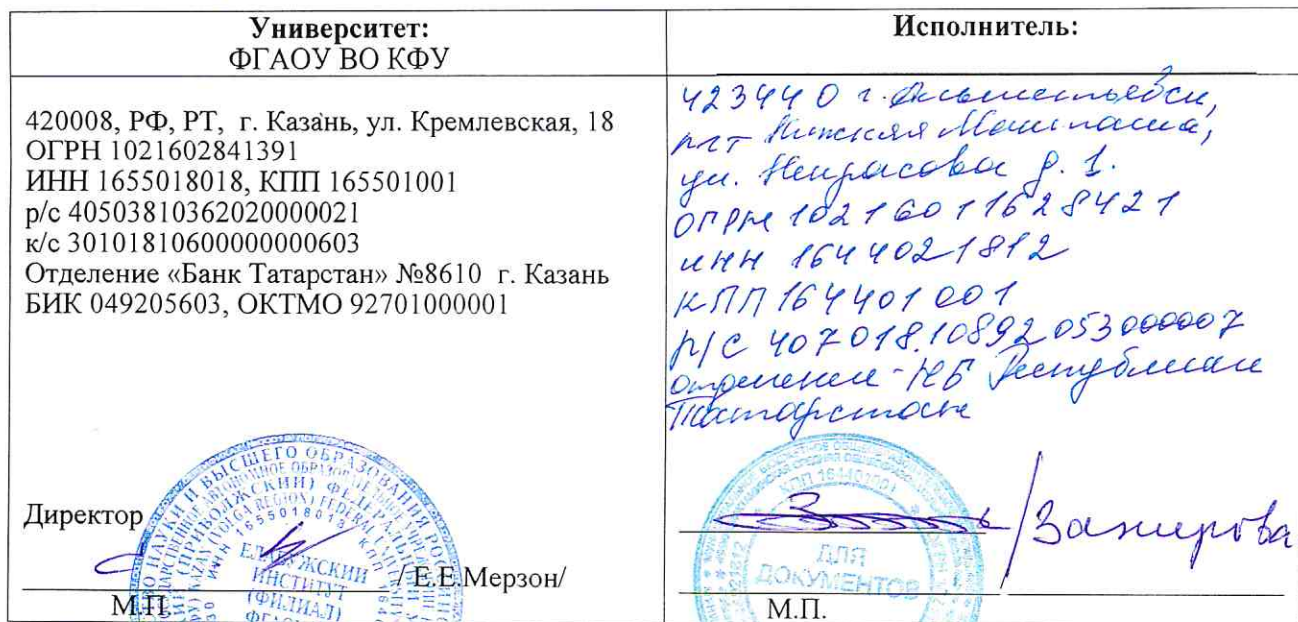 Университет:
ФГАОУ ВО КФУ
420008, РФ, РТ, г. Казань, ул. Кремлевская, 18
ОГРН 1021602841391
ИНН 1655018018, КПП 165501001
р/с 40503810362020000021
к/с 30101810600000000603
Отделение «Банк Татарстан» №8610 г. Казань
БИК 049205603, ОКТМО 92701000001
Директор
/ Е.Е.Мерзон/
М.П.
ЕЛАБУЖСКИЙ
ИНСТИТУТ
(ФИЛИАЛ)
Исполнитель:
423440 г. Альметьевск,
пгт Нижняя Мактама,
ул. Некрасова д. 1.
ОГРН 1021601628421
ИНН 1644021812
КПП 164401001
р/с 40701810892053000007
отделение-НБ Республика
Татарстан
КПП 164401001
/Закирова
ДЛЯ
ДОКУМЕНТОВ
М.П.